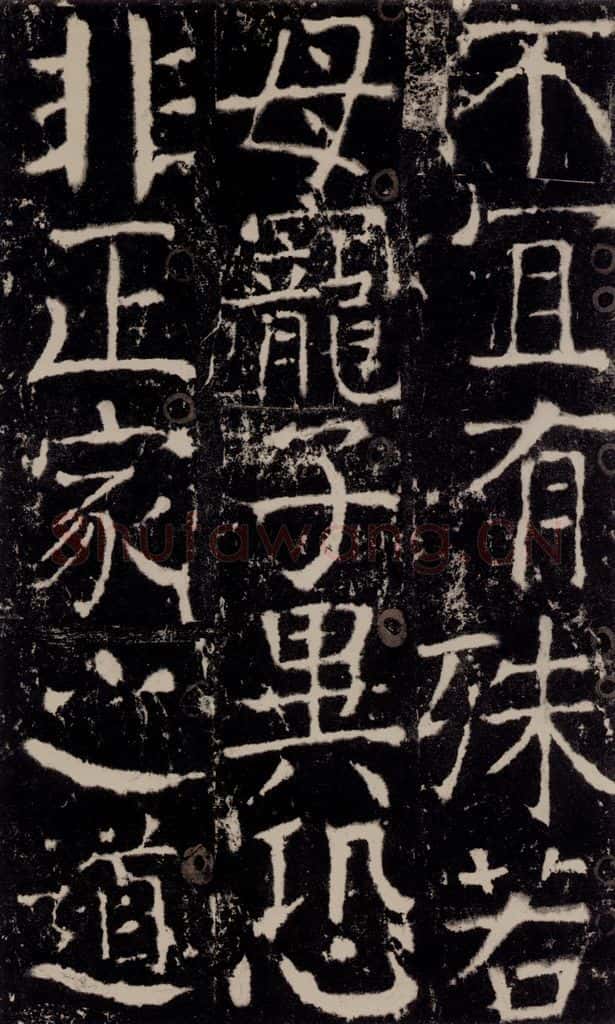 不宜有殊若
母寵子異恐
非正家之道
Shufawang.CN